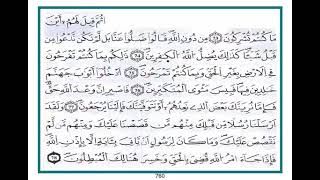 ثُمَّ قِيلَ لَهُمُۥٓ أَيْنَ
مَا كُنتُمْ تُشْرِكُونَ مِن دُونِ اِللَّهِ قَالُوا ضَلُّوا عَنَّا بَل لَّمْ نَكُن نَّدْعُوا مِن
قَبْلُ شَيْـٔاً كَذَٰلِكَ يُضِلُّ اُللَّهُ اُلْكَٰفِرِينَ ذَٰلِكُم بِمَا كُنتُمْ تَفْرَحُونَ
فِے اِلْأَرْضِ بِغَيْرِ اِلْحَقِّ وَبِمَا كُنتُمْ تَمْرَحُونَ اَدْخُلُوٓا أَبْوَٰبَ جَهَنَّمَ
خَٰلِدِينَ فِيهَا فَبِيسَ مَثْوَى اَلْمُتَكَبِّرِينَ فَاصْبِرِ اِنَّ وَعْدَ اَللَّهِ حَقٌّ
فَإِمَّا نُرِيَنَّكَ بَعْضَ اَلذِے نَعِدُهُمُۥٓ أَوْ نَتَوَفَّيَنَّكَ فَإِلَيْنَا يُرْجَعُونَ وَلَقَدَ
اَرْسَلْنَا رُسُلاً مِّن قَبْلِكَ مِنْهُم مَّن قَصَصْنَا عَلَيْكَ وَمِنْهُم مَّن لَّمْ
نَقْصُصْ عَلَيْكَ وَمَا كَانَ لِرَسُولٍ اَن يَاتِيَ بِـَٔايَةٍ اِلَّا بِإِذْنِ اِللَّهِ
فَإِذَا جَآءَ امْرُ اُللَّهِ قُضِيَ بِالْحَقِّ وَخَسِرَ هُنَالِكَ اَلْمُبْطِلُونَ
760